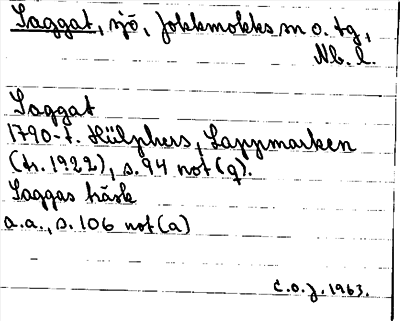 Saggat, sjö, Jokkmokks sn o. tg,
Nb. l.
Saggat
1790-t. Hülphers, Lappmarken
(tr. 1922), s. 94 not (q).
Saggas träsk
a.a., s. 106 not (a)
C.O.J. 1963.